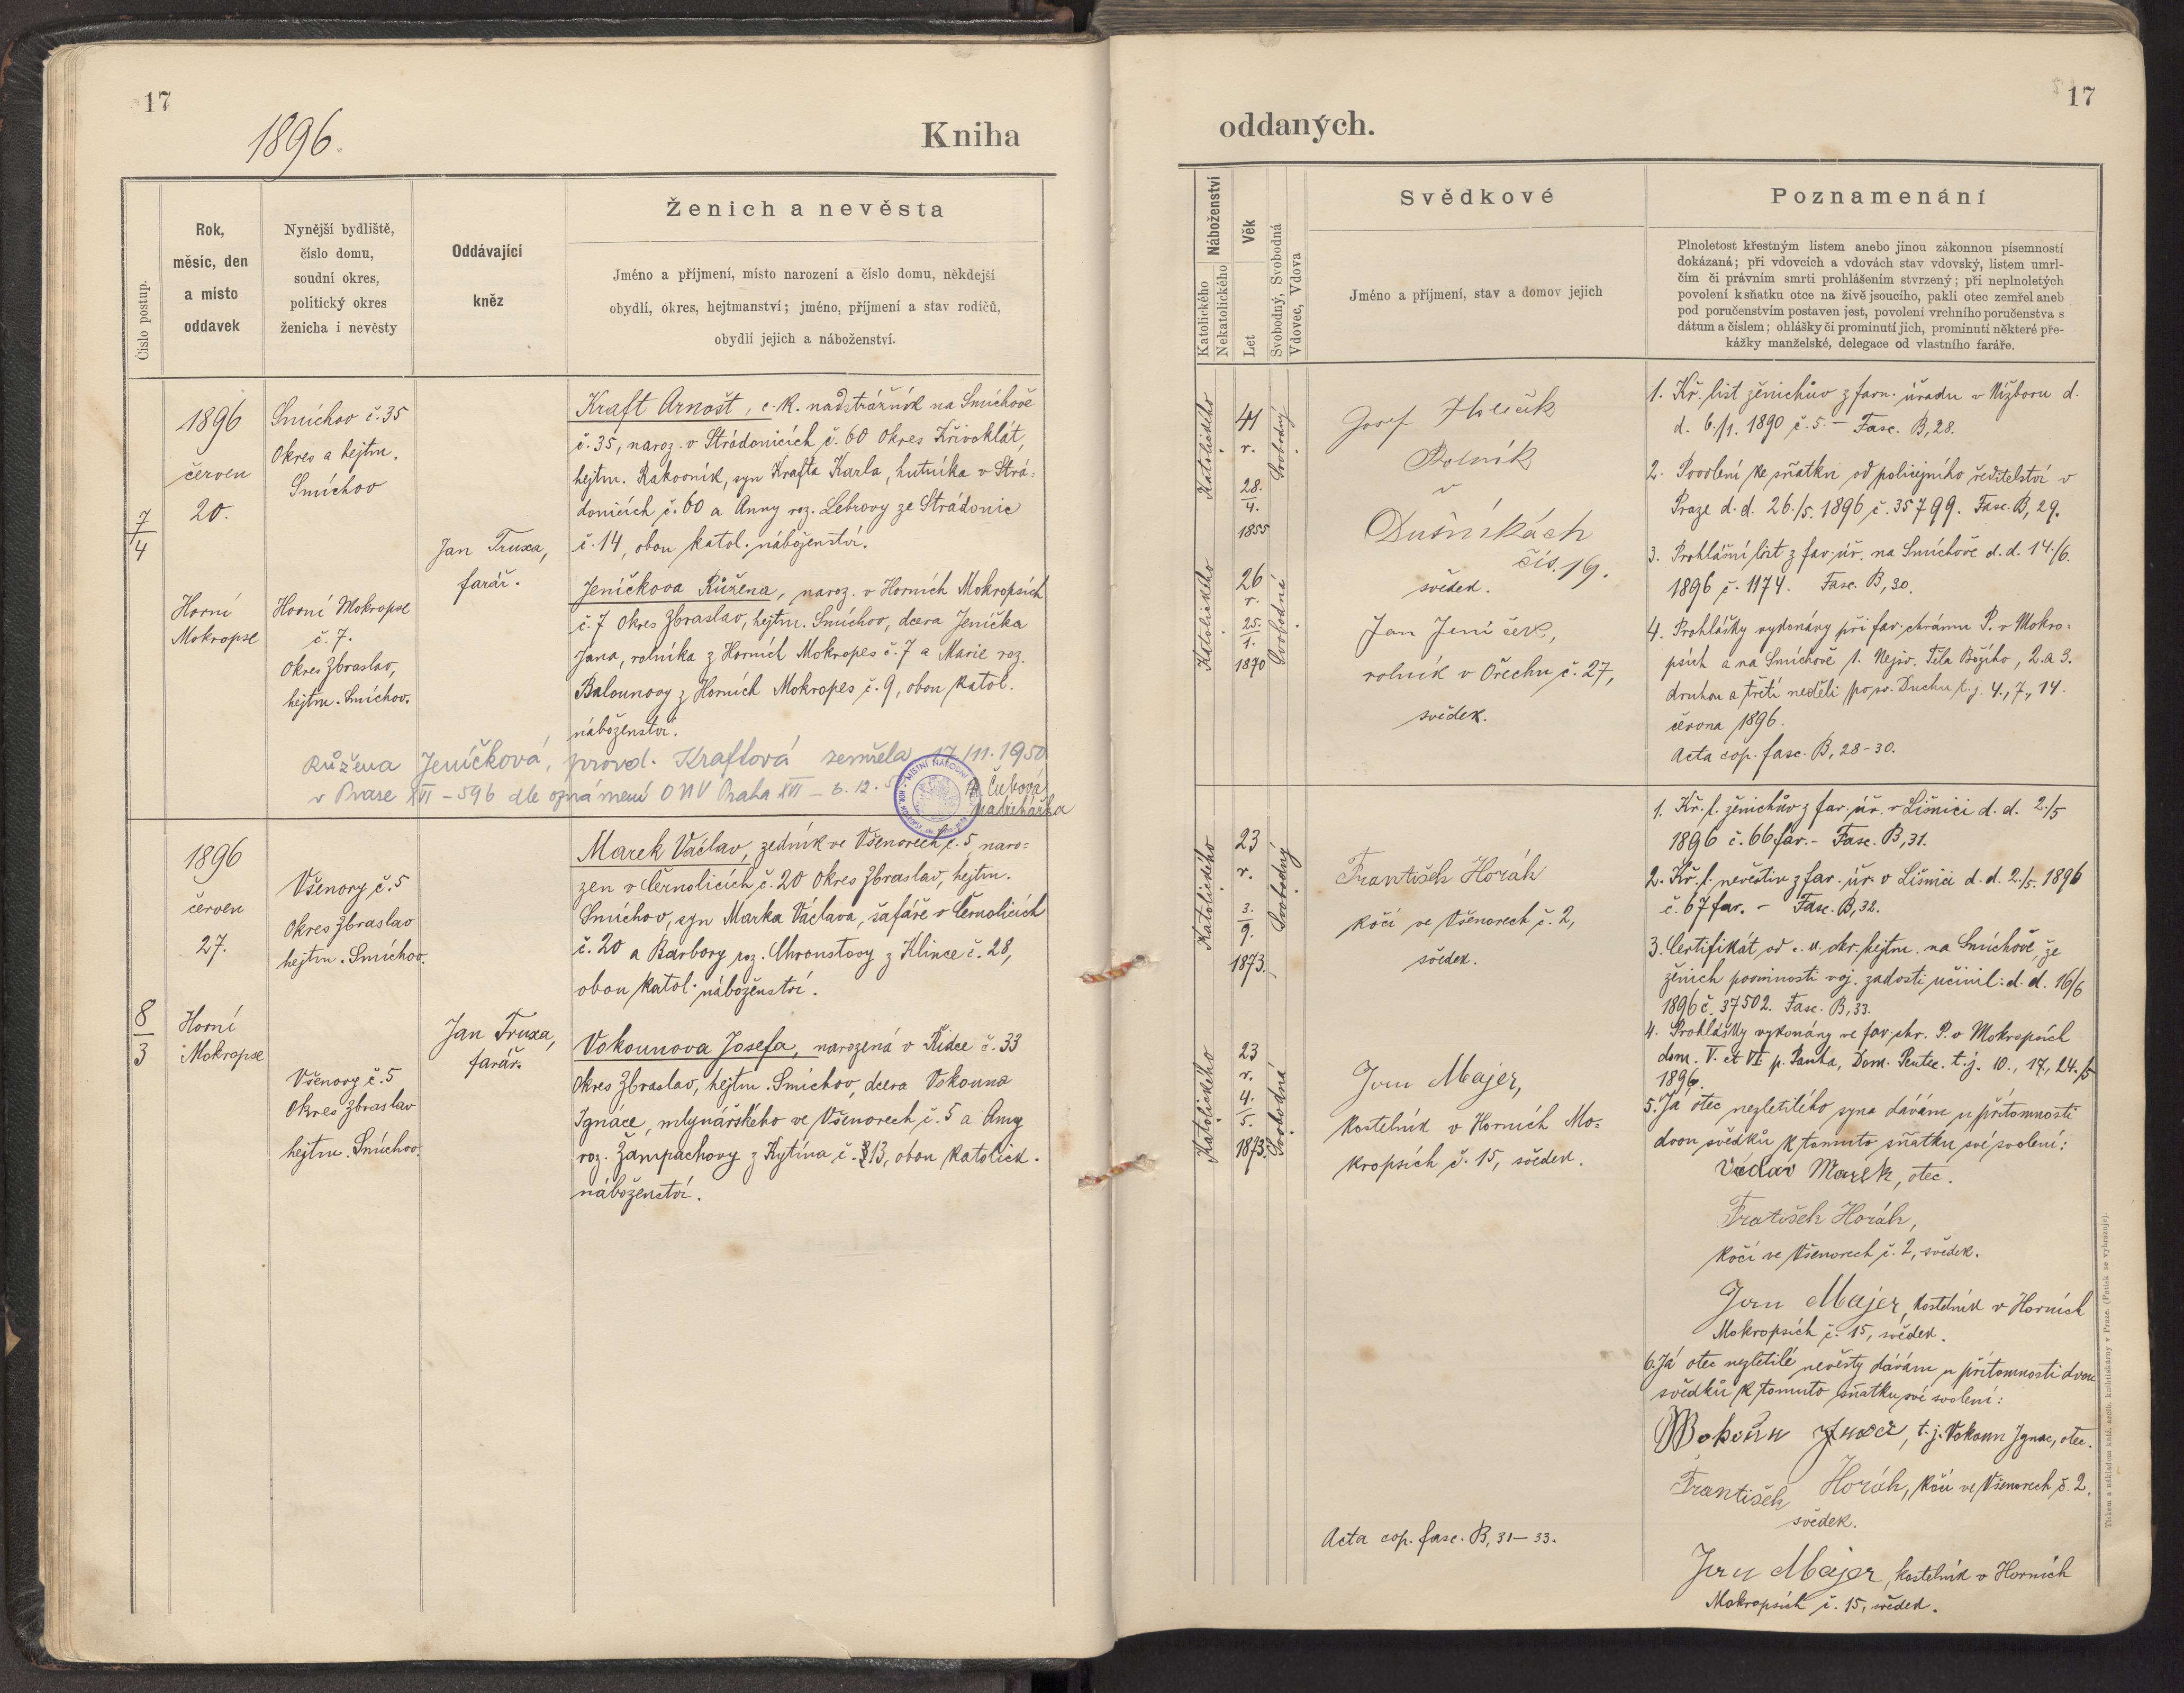 17
1896.
Kniha
Číslo postup.
Rok,
měsíc, den
a místo
oddavek
Nynější bydliště,
číslo domu,
soudní okres,
politický okres
ženicha i nevěsty
Oddávající
kněz
Ženich a nevěsta
Jméno a příjmení, místo narození a číslo domu, někdejší
obydlí, okres, hejtmanství; jméno, příjmení a stav rodičů,
obydlí jejich a náboženství.
7
4
1896
červen
20.
Horní
Mokropse
Smíchov č. 35
Okres a hejtm.
Smíchov
Horní Mokropse
č. 7.
Okres Zbraslav,
hejtm. Smíchov.
Jan Truxa,
farář.
Kraft Arnošt, c. k. nadstrážník na Smíchově
č. 35, naroz. v Strádonicích č. 60 Okres Křivoklát,
hejtm. Rakovník, syn Krafta Karla, hutníka v Strá-
donicích č. 60 a Anny roz. Lebrovy ze Strádonic
č. 14, obou katol. náboženství.
Jeníčkova Růžena, naroz. v Horních Mokropsích
č. 7 Okres Zbraslav, hejtm. Smíchov, dcera Jeníčka
Jana, rolníka z Horních Mokropes č. 7 a Marie roz.
Balounovy z Horních Mokropes č. 9, obou katol.
náboženství.
Růžena Jeníčková, provd. Kraftová zemřela 17./11. 1950
v Praze XVI - 596 dle oznámení ONV Praha XVI - 6. 12.
Čubová
matrikářka
MÍSTNÍ NÁRODNÍ
8
3
1896
červen
27.
Horní
Mokropse
Všenory č. 5
Okres Zbraslav
hejtm. Smíchov.
Všenory č. 5
Okres Zbraslav
hejtm. Smíchov.
Jan Truxa,
farář.
Marek Václav, zedník ve Všenorech č. 5, naro-
zen v Černolicích č. 20 Okres Zbraslav, hejtm.
Smíchov, syn Marka Václava, šafáře v Černolicích
č. 20 a Barbory roz. Chroustovy z Klince č. 28,
obou katol. náboženství.
Vokounova Josefa, narozená v Řidce č. 33
Okres Zbraslav, hejtm. Smíchov, dcera Vokouna
Ignáce, mlynářského ve Všenorech č. 5 a Anny
roz. Žampachovy z Kytína č. 13, obou katolick.
náboženství.
17
oddaných.
Náboženství
Katolického
Nekatolického
Věk
Let
Svobodný, Svobodná
Vdovec, Vdova
Svědkové
Jméno a příjmení, stav a domov jejich
Poznamenání
Plnoletost křestným listem anebo jinou zákonnou písemností
dokázaná; při vdovcích a vdovách stav vdovský, listem umrl-
čím či právním smrti prohlášením stvrzený; při neplnoletých
povolení k sňatku otce na živě jsoucího, pakli otec zemřel aneb
pod poručenstvím postaven jest, povolení vrchního poručenstva s
dátum a číslem; ohlášky či prominutí jich, prominutí některé pře-
kážky manželské, delegace od vlastního faráře.
Katolického
41
r.
28.
4.
1855
Svobodný
Katolického
26
r.
25.
1.
1870
Svobodná
Josef
Rolník
v
Dušníkách
čís. 19.
svědek.
Jan Jeníček,
rolník v Ořechu č. 27,
svědek.
1. Kř. list ženichův z farn. úřadu v Nižboru d.
d. 6./1. 1890 č. 5. - Fasc. B, 28.
2. Povolení ke sňatku od policejního ředitelství v
Praze d. d. 26./5. 1896 č. 35799. Fasc. B, 29.
3. Prohlášní list z far. úř. na Smíchově d. d. 14./6.
1896 č. 1174. Fasc. B, 30.
4. Prohlášky vykonány při far. chrámu P. v Mokro-
psích a na Smíchově 1. Nejsv. Těla Božího, 2. a 3.
druhou a třetí neděli po sv. Duchu t. j. 4., 7., 14.
června 1896.
Acta cop. fasc. B, 28-30.
Katolického
23
r.
3.
9.
1873.
Svobodný
Katolického
23
r.
4.
5.
1873.
Svobodná
František Horák
kočí ve Všenorech č. 2,
svědek.
Jan Majer,
kostelník v Horních Mo-
kropsích č. 15, svědek.
Acta cop. fasc. B, 31-33.
1. Kř. l. ženichův z far. úř. v Líšnici d. d. 2./5
1896 č. 66 far. - Fasc. B, 31.
2. Kř. l. nevěstin z far. úř. v Líšnici d. d. 2./5. 1896
č. 67 far. - Fasc. B, 32.
3. Certifikát od okr. hejtm. na Smíchově, že
ženich povinnosti voj. zadosti učinil: d. d. 16/6
1896 č. 37502. Fasc. B, 33.
4. Prohlášky vykonány ve far. chr. P. v Mokropsích
dom. V. et VI p. Pascha, Dom. Pentec. t. j. 10., 17., 24./5
1896.
5. Já otec nezletilého syna dávám u přítomnosti
dvou svědků k tomuto sňatku své svolení:
Václav Marek, otec.
Fratišek Horák,
kočí ve Všenorech č. 2, svědek.
Jan Majer, kostelník v Horních
Mokropsích č. 15, svědek.
6. Já otec nezletilé nevěsty dávám u přítomnosti dvou
svědků k tomuto sňatku své svolení:
Wokoun, t. j. Vokoun Ignac, otec.
František Horák, kočí ve Všenorech č. 2,
svědek.
Jan Majer, kostelník v Horních
Mokropsích č. 15, svědek.
Tiskem a nákladem kníž. arcib. knihtiskárny v Praze. (Patisk se vyhrazuje).